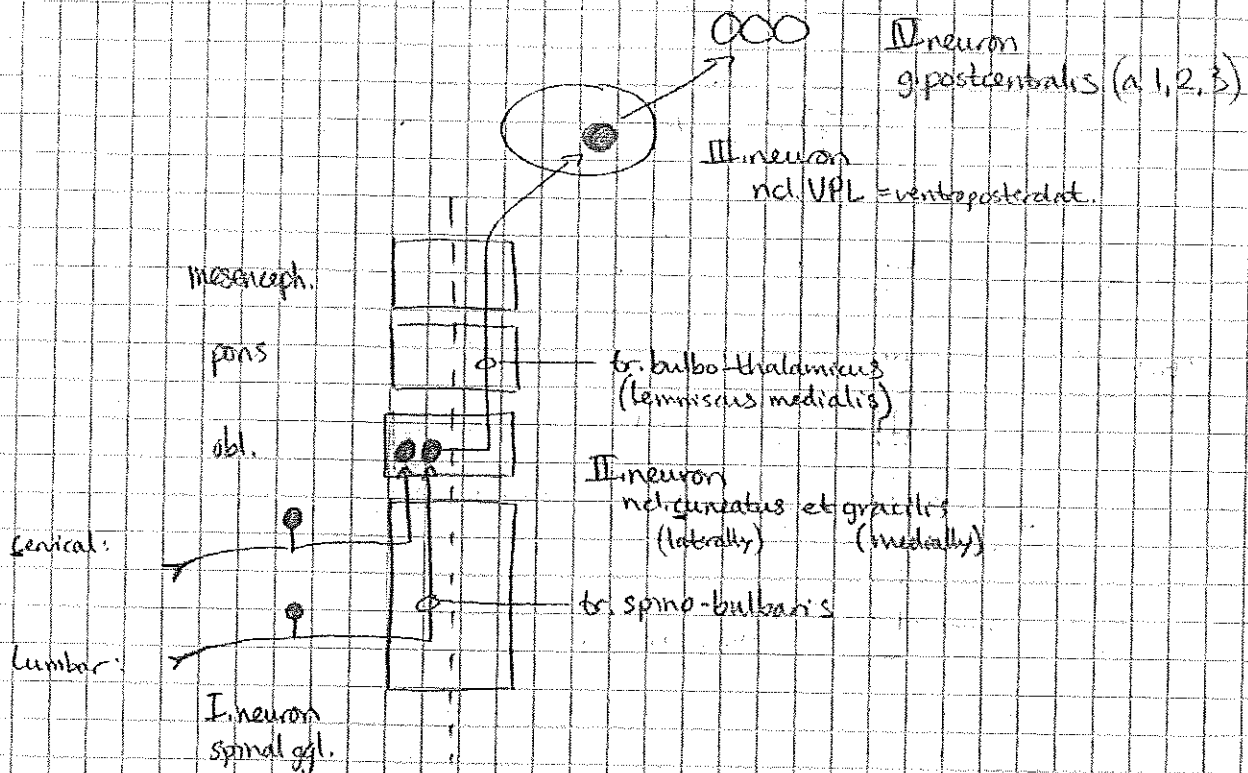 IV. neuron
g. postcentralis (a 1, 2, 3)
III. neuron
ncl. VPL = ventroposterolat.
mesenceph.
pons
tr. bulbo-thalamicus
(lemniscus medialis)
obl.
II. neuron
ncl. cuneatus et gracilis
(latrally) (medially)
cervical:
tr. spino-bulbaris
Lumbar:
I. neuron
spinal ggl.